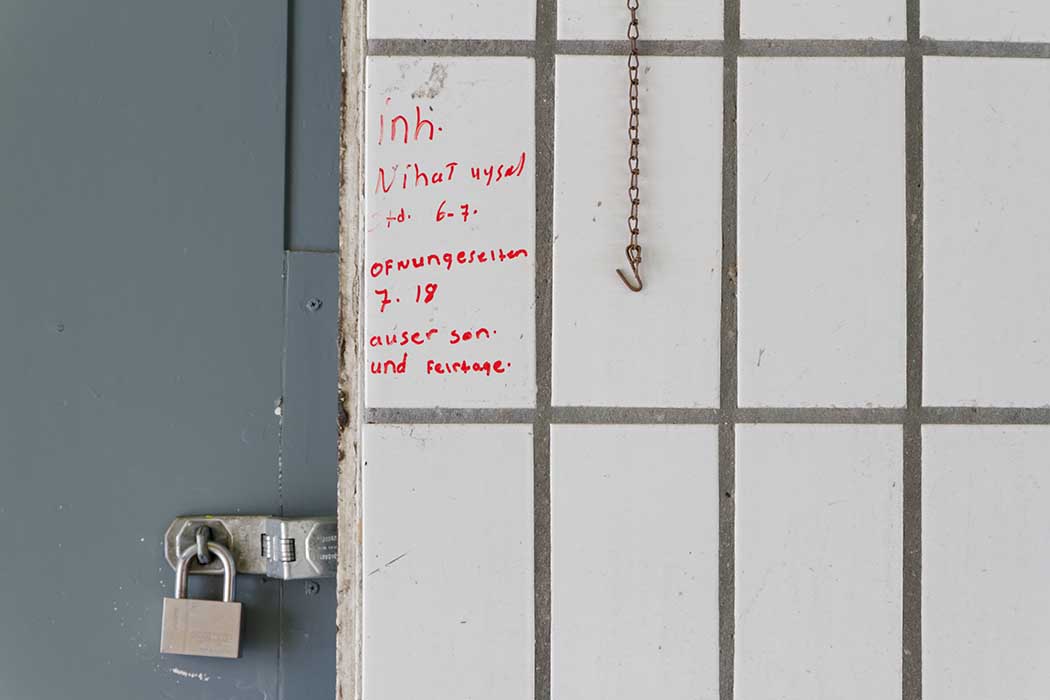 inh.
Nihat uysal
Std. 6-7.
OFNungeseiten
7. 18
auser son.
und Feirtage.